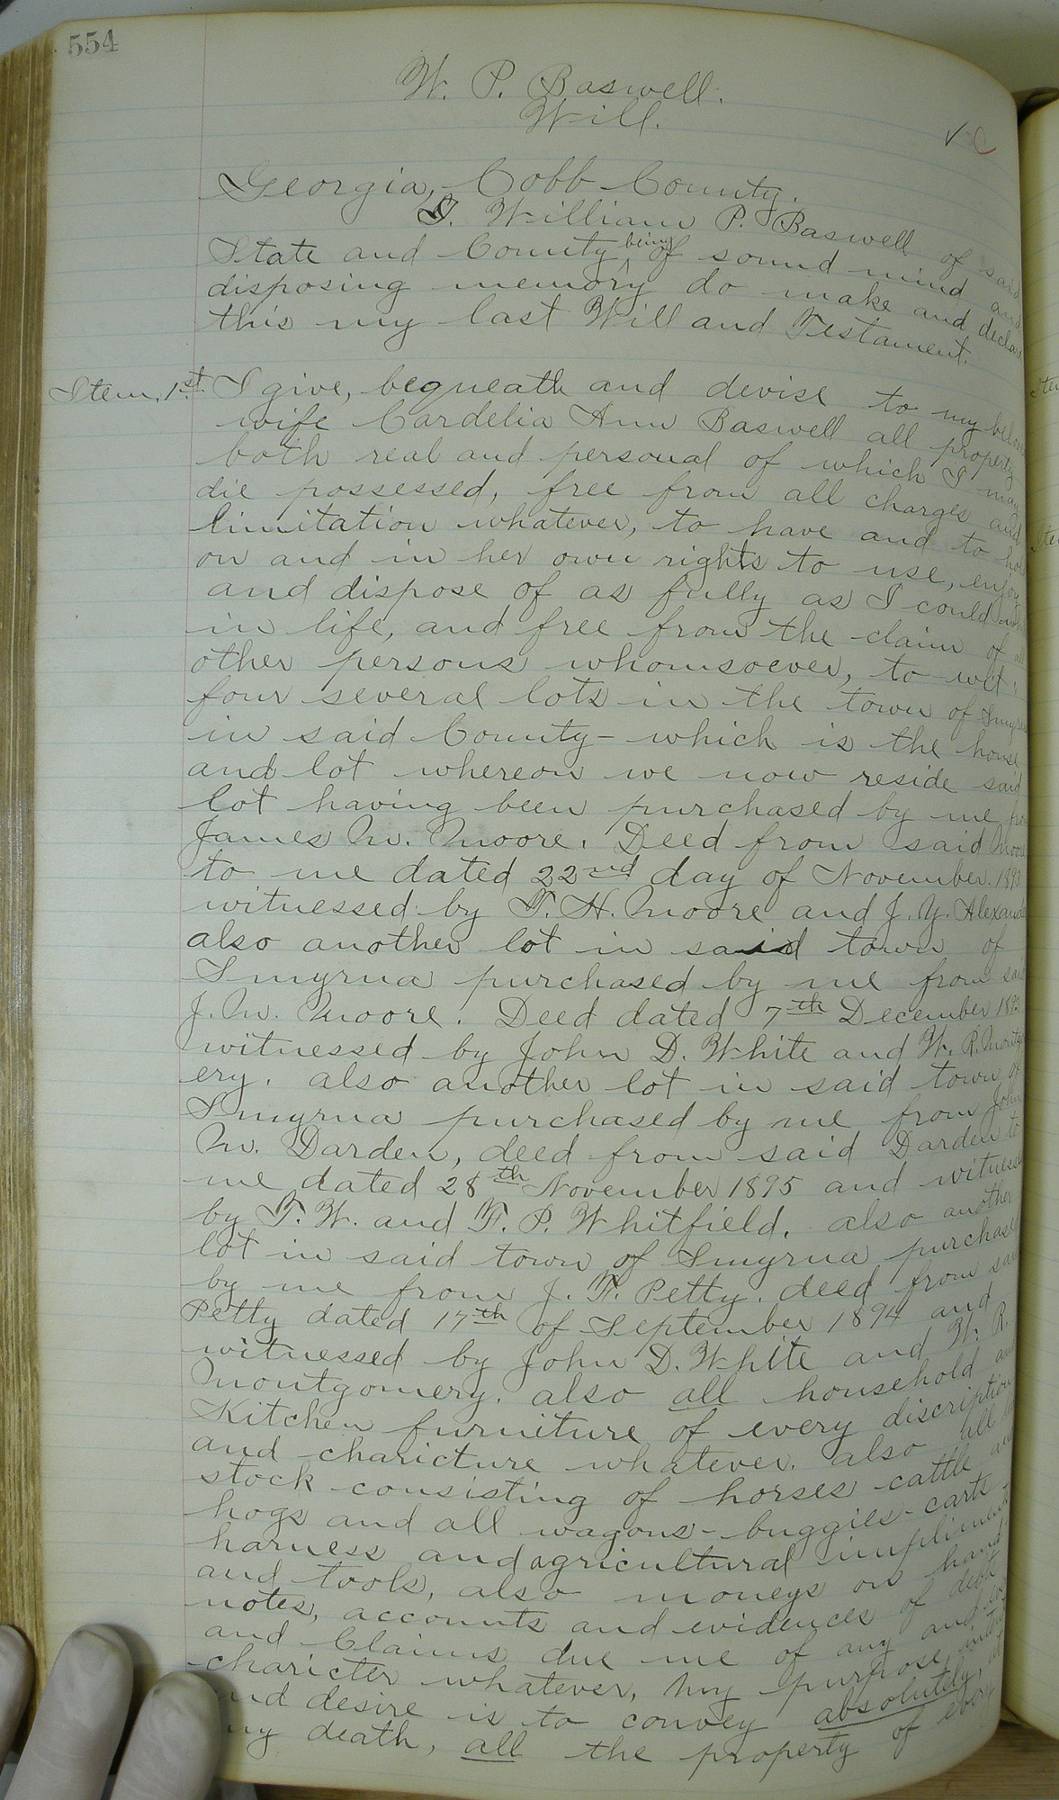 554
W. P. Baswell.
Will.
✓ C
Georgia, Cobb County.
I. William P. Baswell of said
State and County, being of sound mind and
disposing memory do make and declare
this my last Will and Testament.
Item, 1st. I give, beqneath and devise to my
wife Cardelia Ann Baswell all property
both real and personal of which I may
die possessed, free from all charges and
limitation whatever, to have and to hold
on and in her own rights to use, enjoy
and dispose of as fully as I could
in life, and free from the claim of all
other persons whomsoever, to wit,
four several lots in the town of Smyrna
in said County - which is the house
and lot whereon we now reside said
lot having been purchased by me from
James M. Moore. Deed from said Moore
to me dated 22nd day of November.
witnessed by T. H. Moore and J. Y. Alexander
also another lot in said town of
Smyrna purchased by me from said
J. M. Moore. Deed dated 7th December
witnessed by John D. White and W. R. Montgom
ery. also another lot in said town of
Smyrna purchased by me from John
M. Darden, deed from said Darden to
me dated 28th November 1895 and witnessed
by T. W. and F. P. Whitfield. also another
lot in said town of Smyrna purchased
by me from J. F. Petty. deed from said
Petty dated 17th of September 1894 and
witnessed by John D. White and W. R.
Montgomery. also all household and
Kitchen furniture of every discription
and charicture whatever. also all
stock consisting of horses cattle and
hogs and all wagons - buggies - carts
harness and agricultural impliments
and tools, also moneys on hand
notes, accounts and evidences of debts
and Claims due me of any and
charicter whatever, My purpose,
and desire is to convey absolutely,
my death, all the property of every